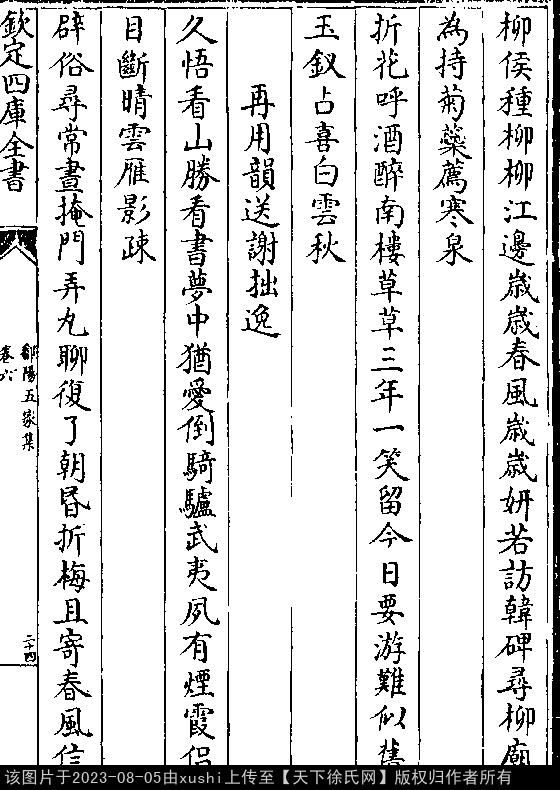 柳侯種柳柳江邊歳歳春風歳歳妍若訪韓碑尋柳廟
為持菊蘂薦寒泉
折花呼酒醉南樓草草三年一笑留今日要游難似舊
玉釵占喜白雲秋
再用韻送謝拙逸
久悟看山勝看書夢中猶愛倒騎驢武夷夙有煙霞侣
目斷晴雲雁影疎
辟俗尋常晝掩門弄丸聊復了朝昏折梅且寄春風信
欽定四庫全書
鄱陽五家集
卷六
二十四
该图片于2023-08-05由xushi上传至【天下徐氏网】版权归作者所有